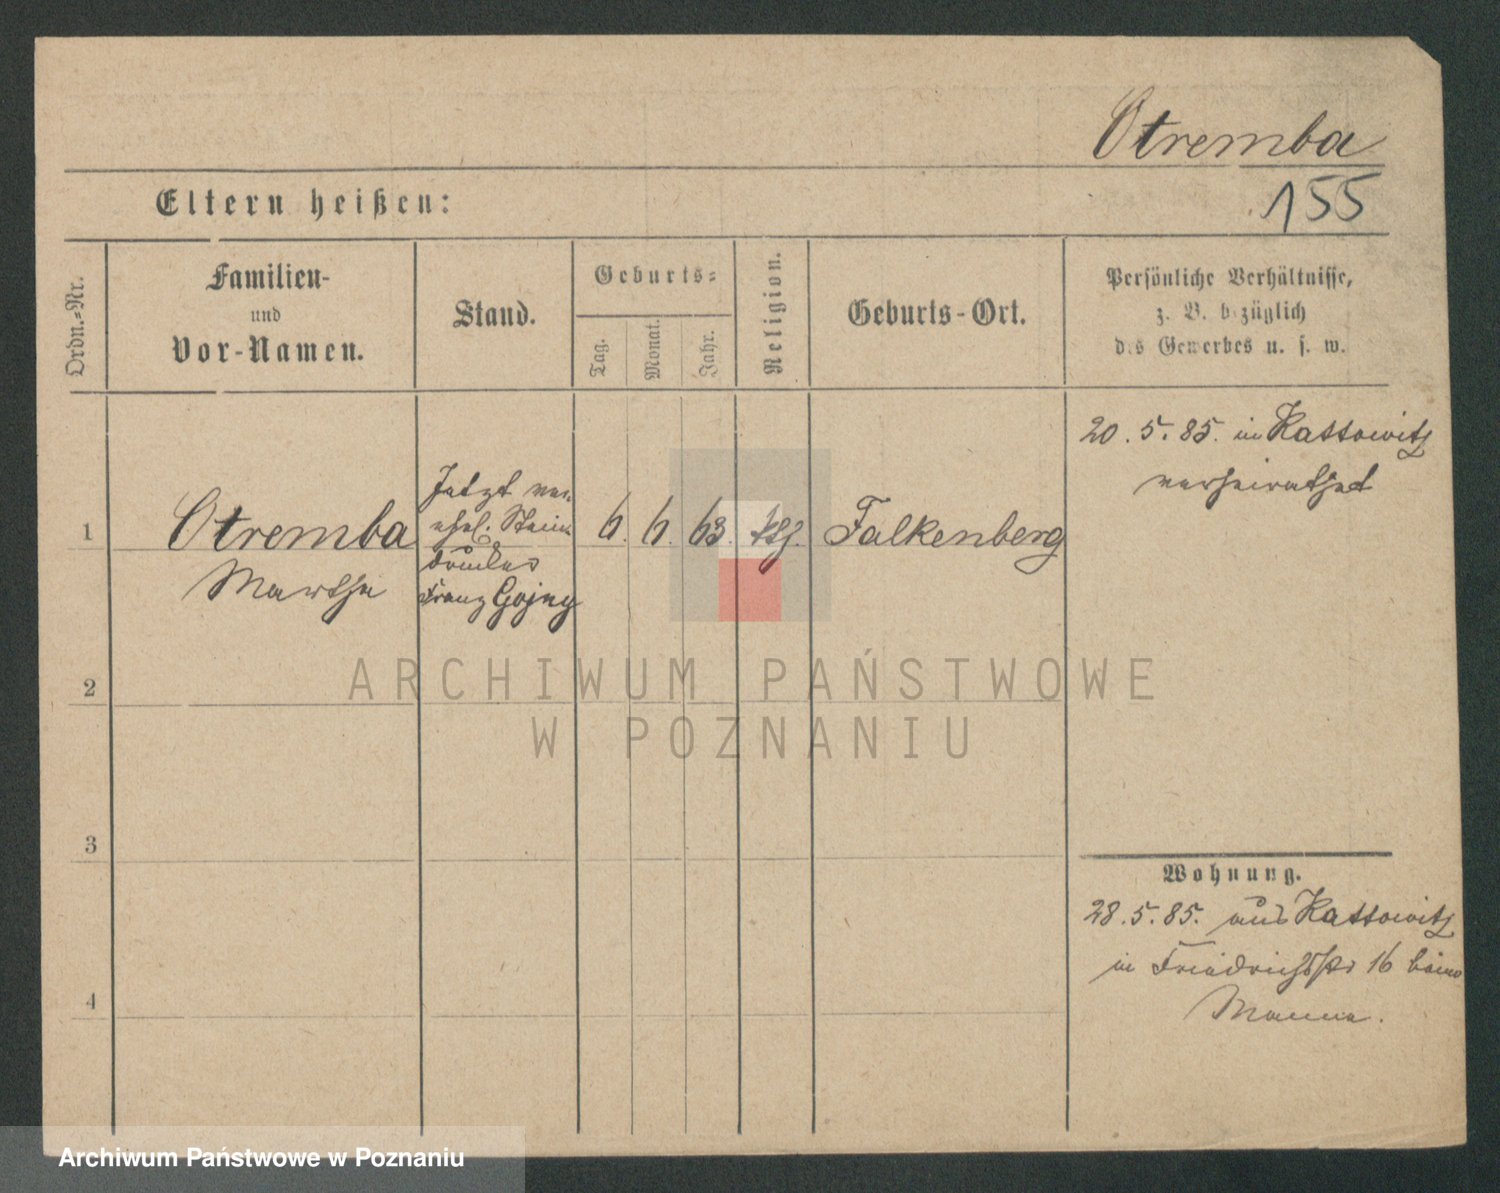 Otremba
155
Eltern heißen:
Ordn.-Nr.
Familien-
und
Vor-Namen.
Stand.
Geburts-
Tag.
Monat.
Jahr.
Religion.
Geburts-Ort.
Persönliche Verhältnisse,
z. B. bezüglich
des Gewerbes u. s. w.
1
Otremba
Martha
Jetzt ver-
ehel. Stein-
drucker
Franz Gojny
6. 6. 63. ktg. Falkenberg
20. 5. 85. in Kattowitz
verheirathet
2
3
4
Wohnung.
28. 5. 85. aus Kattowitz
in Friedrichstr 16 beim
Manne.
ARCHIWUM PAŃSTWOWE
W POZNANIU
Archiwum Państwowe w Poznaniu